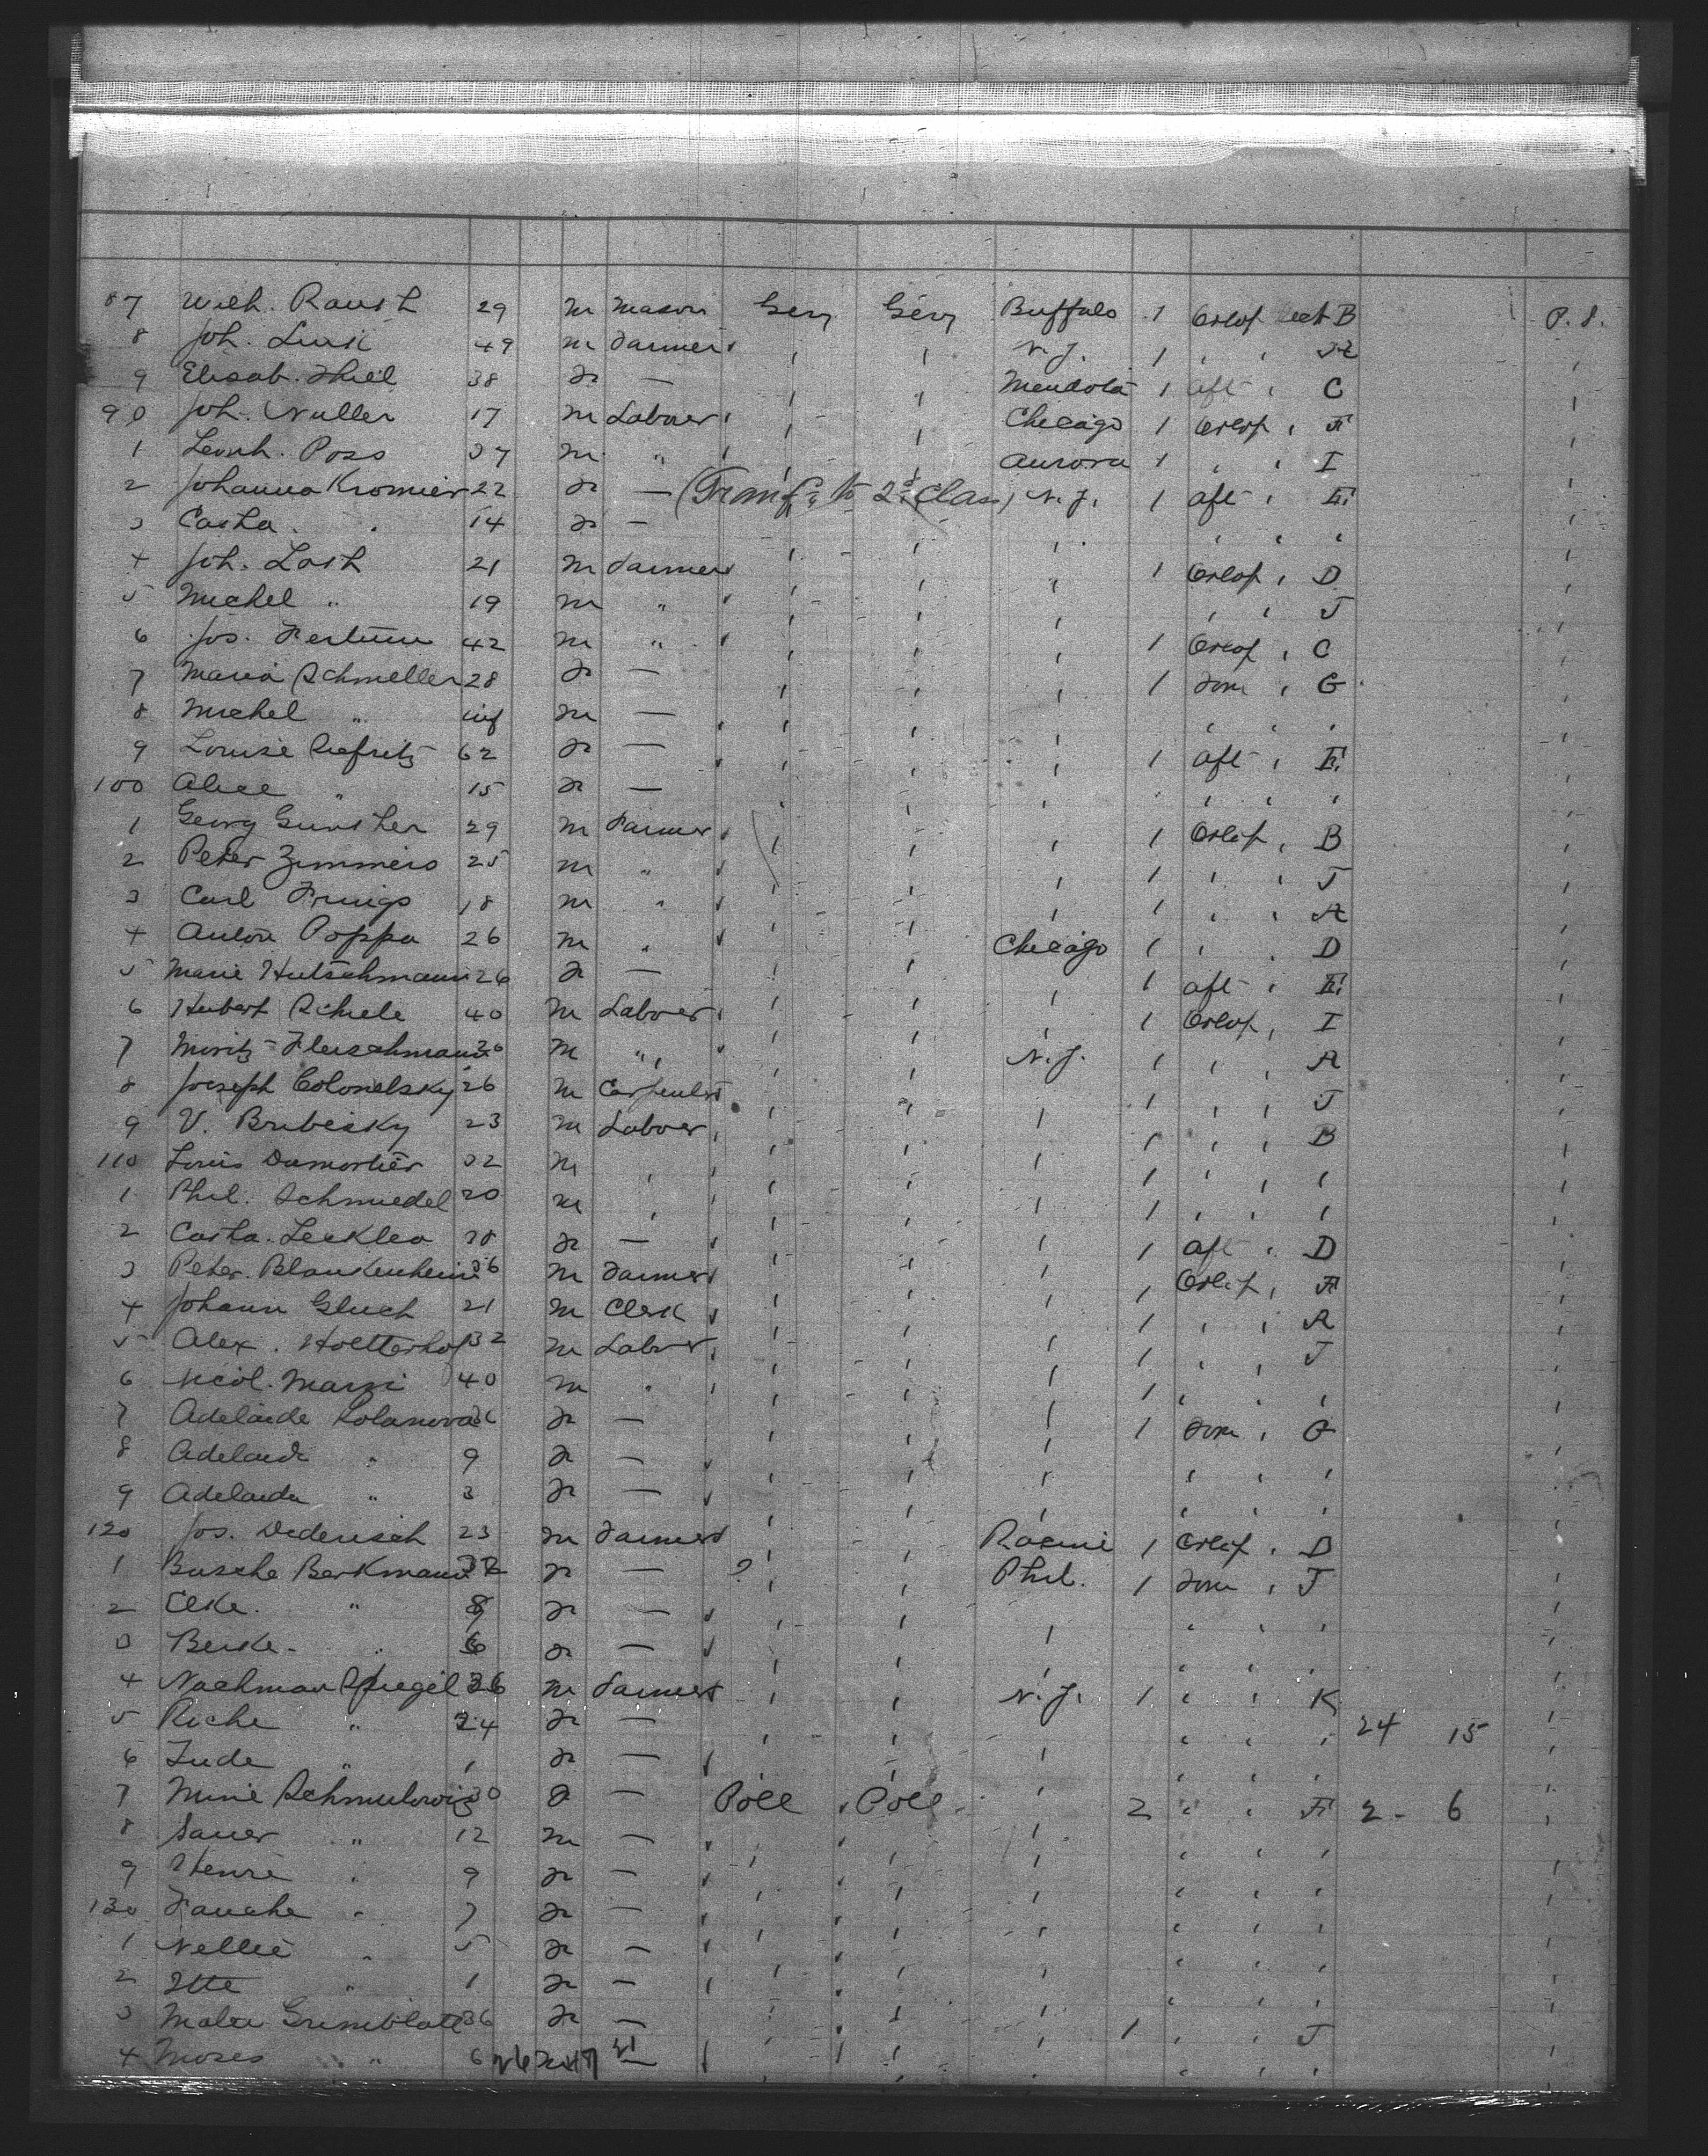 87 Wilh. Raush 29 m Mason Gery Gery Buffalo 1 Orlop Sect B P. S.
8 Joh. Lusk 49 m Farmer , , N. J. 1 , , A ,
9 Elisab. Thiel 38 F — , , Mendota 1 aft , C ,
90 Joh. Muller 17 m Laborer , , Chicago 1 Orlop , F ,
1 Leonh. Poss 37 m " , , Aurora 1 , , I ,
2 Johanna Kromier 22 F — (Transf. to 2d Class) N. J. 1 aft , E ,
3 Casha " 14 F — , , , , , , ,
4 Joh. Lash 21 m Farmer , , , 1 Orlop , D ,
5 Michel " 19 m " , , , , , J ,
6 Jos. 42 m " , , , 1 Orlop , C ,
7 Maria Schmeller 28 F — , , , 1 , G ,
8 Michel " inf m — , , , , , , ,
9 Louise 62 F — , , , 1 aft , E ,
100 Alice " 15 F — , , , , , , ,
1 Georg Gunther 29 m Farmer , , , 1 Orlop , B ,
2 Peter Zimmers 25 m " , , , 1 , , J ,
3 Carl Frings 18 m " , , , 1 , , A ,
4 Anton Poppa 26 m " , , Chicago 1 , , D ,
5 Marie Hutschmann 26 F — , , , 1 aft , E ,
6 Hubert Schiele 40 m Laborer , , , 1 Orlop , I ,
7 Moritz Fleischmann 26 m " , , N. J. 1 , , A ,
8 Joseph Colonelsky 26 m Carpenter , , , 1 , , J ,
9 V. Brubesky 23 m Laborer , , , 1 , , B ,
110 Louis Dumortier 32 m , , , , 1 , , , ,
1 Phil. Schmiedel 20 m , , , , 1 , , , ,
2 Casha. Leeklea 38 F — , , , 1 aft , D ,
3 Peter. Blankenheim 36 m Farmer , , , 1 Orlop , F ,
4 Johann Gluch 21 m Clerk , , , 1 , , A ,
5 Alex. Holterhof 32 m Labor , , , 1 , , J ,
6 Nicol. Marxi 40 m " , , , 1 , , , ,
7 Adelaide Kolanova F — , , , 1 , G ,
8 Adelaide " 9 F — , , , , , , ,
9 Adelaida " 3 F — , , , , , , ,
120 Jos. Dederisch 23 m Farmer , , Racine 1 Orlop , D ,
1 Busche Berkmann 32 F — ? , , Phil. 1 , J ,
2 Elke. " F — , , , , , , ,
3 Berke. " 6 F — , , , , , , ,
4 Nachman Spiegel 26 m Farmer , , N. J. 1 , , K ,
5 Riche " 24 F — , , , , , , 24 15 ,
6 Jude " 1 F — , , , , , , ,
7 Mine Schmulowitz 30 F — Poll Poll , 2 , , F 2 - 6 ,
8 Sauer " 12 m — , , , , , , ,
9 Henie " 9 F — , , , , , , ,
130 Fanche " 7 F — , , , , , , ,
1 Nellie " 5 F — , , , , , , ,
2 Itte " 1 F — , , , , , , ,
3 Malei Grimblatt 36 F — , , , 1 , , J ,
4 Moses " 6 — , , , , , , ,